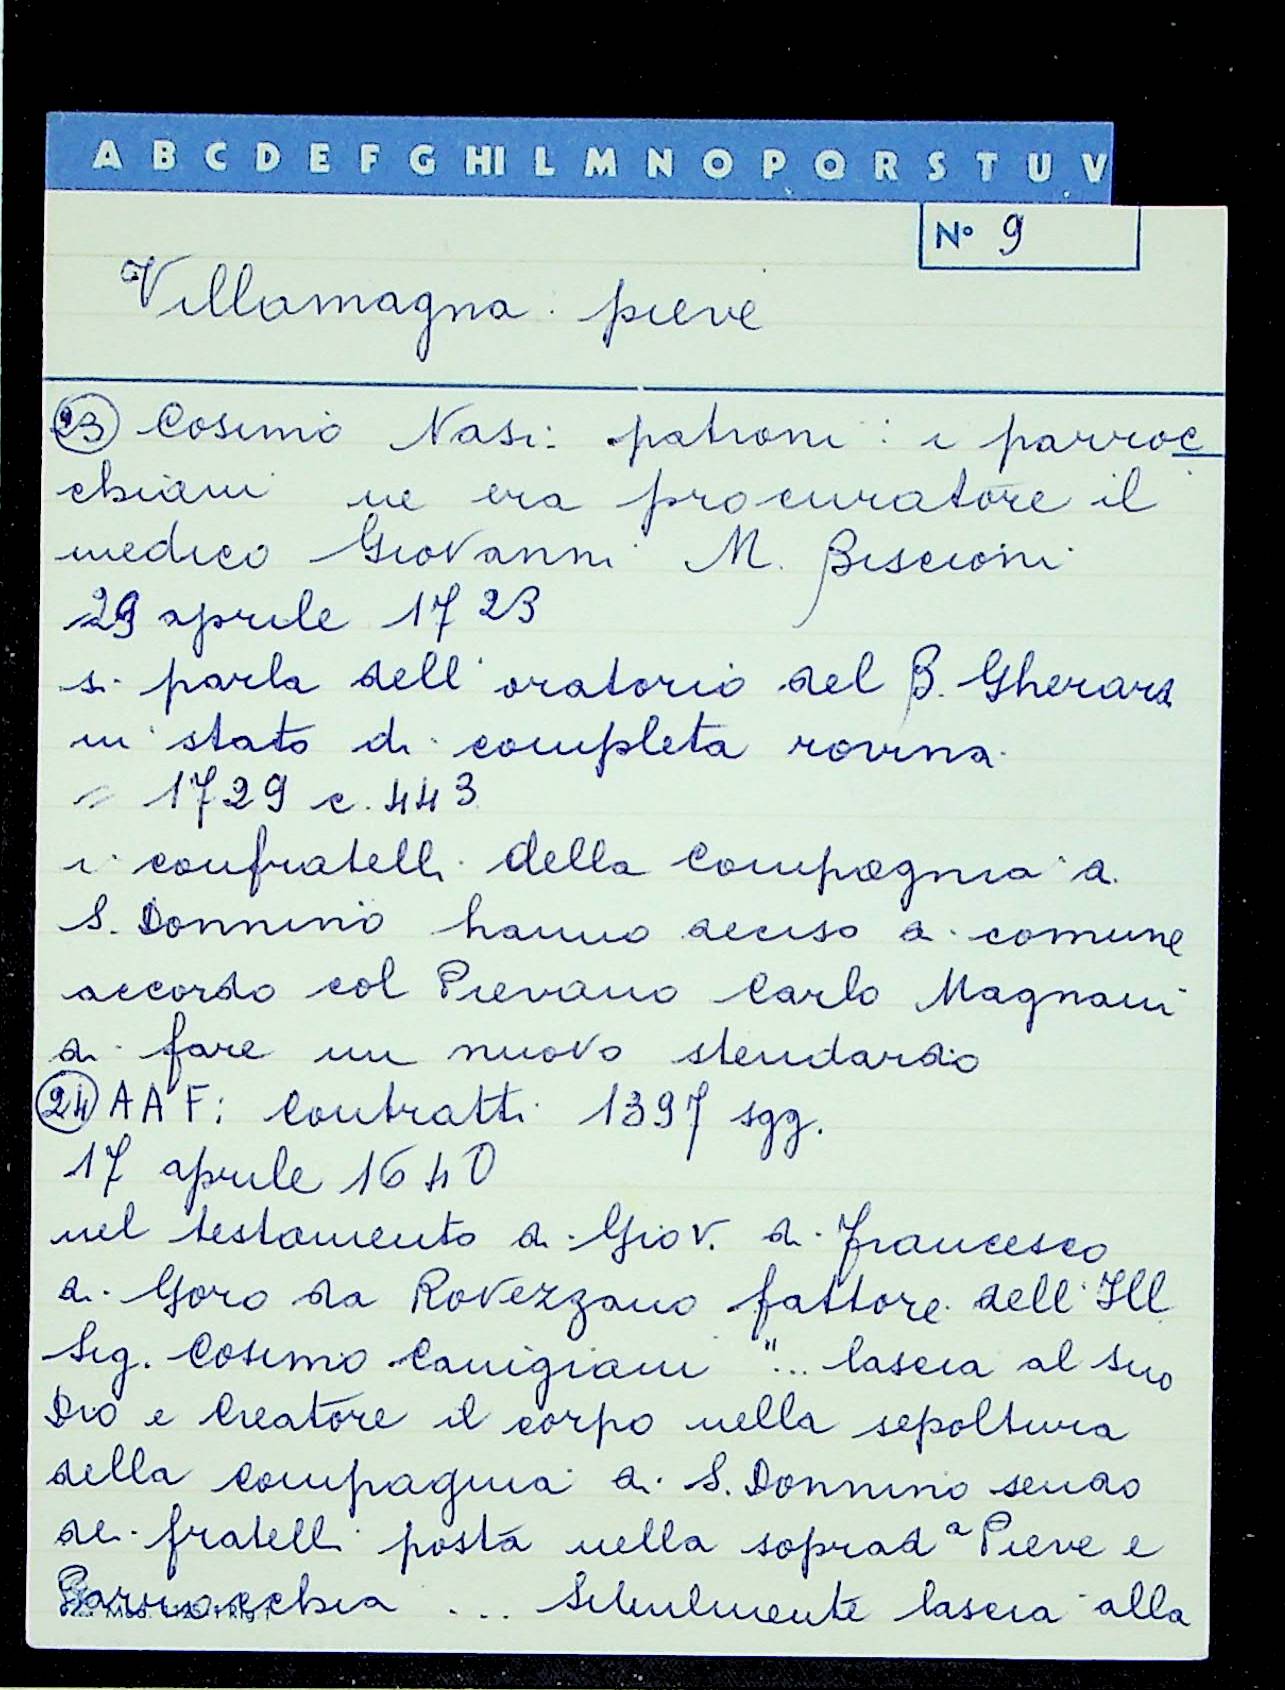 A B C D E F G HI L M N O P Q R S T U V
N° 9
Villamagna: pieve
23 Cosimo Nasi: patroni: i parroc
chiani ne era procuratore il
medico Giovanni M. Biscioni
29 aprile 1723
si parla dell'oratorio del B. Gherard
in stato di completa rovina
= 1729 c. 443
i confratelli della Compagnia di
S. Donnino hanno deciso di comune
accordo col Pievano Carlo Magnani
di fare un nuovo stendardo
24 AAF: Contratti 1397 sgg.
17 aprile 1640
nel testamento di Giov. di Francesco
di Goro da Rovezzano fattore dell'Ill
Sig. Cosimo Canigiani "... lascia al suo
Dio e Creatore il corpo nella sepoltura
della compagnia di S. Donnino sendo
dei fratelli posta nella soprad.a Pieve e
Parrocchia ... Similmente lascia alla